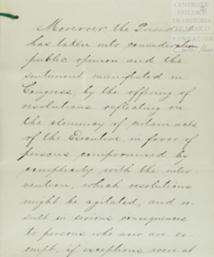 Moreover the President
has taken into consideration
public opinion and the
sentiment manifested in
Congress, by the offering of
resolutions reflecting on
the clemency of certain acts
of the Executive in favor of
persons compromised by
complicity with the inter
vention, which resolutions
might be agitated, and re
sult in serious consequences
to persons who now are ex
empt, if exceptions were at